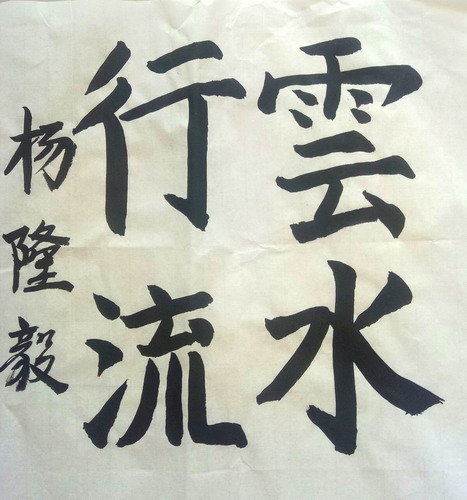 雲水
行流
杨隆毅